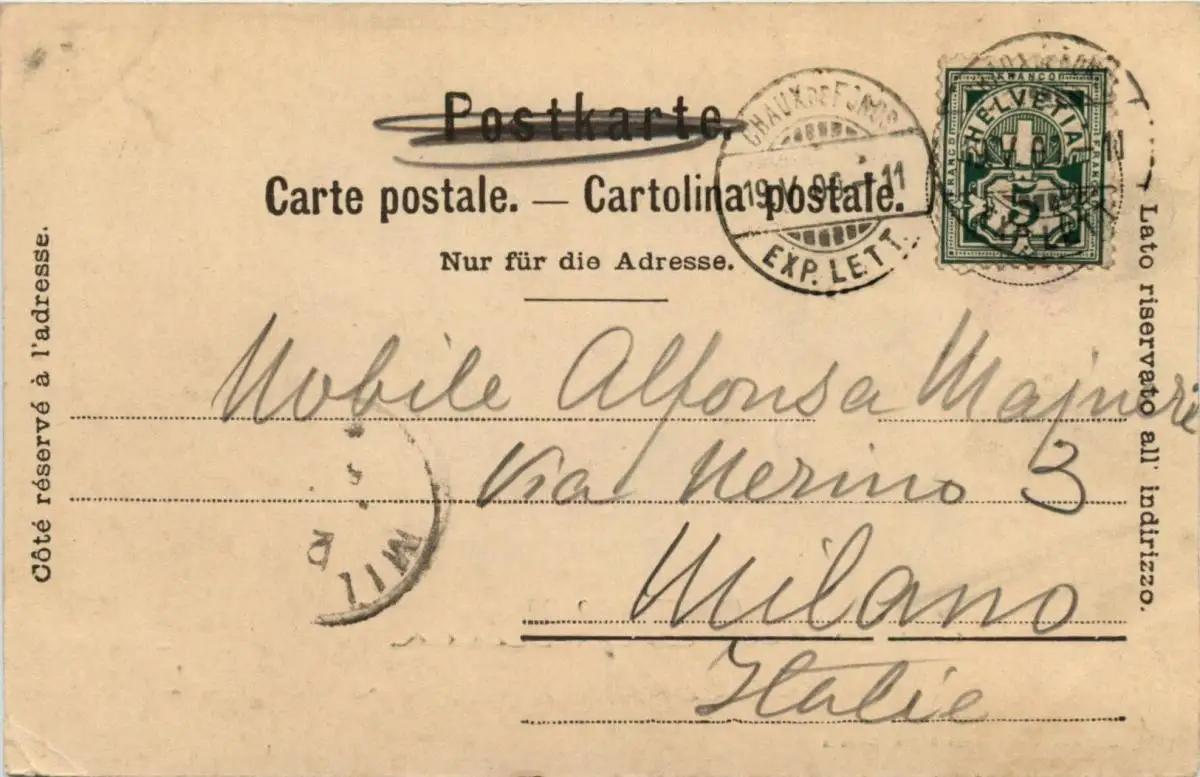 Postkarte.
Carte postale. — Cartolina postale.
Nur für die Adresse.
CHAUX DE FONDS
EXP. LETT.
FRANCO
HELVETIA
5
Côté réservé à l'adresse.
Lato riservato all' indirizzo.
Nobile Alfonsa
Via Nerino 3
Milano
Italie
MIL